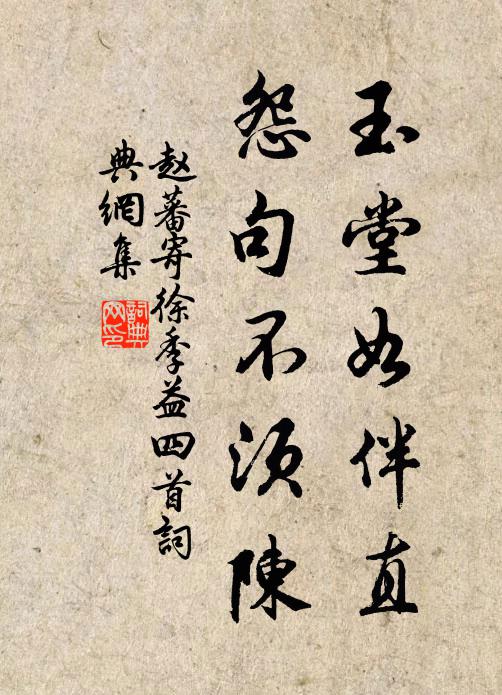 玉堂如伴直
怨句不須陳
赵蕃寄徐季益四首詞
典網集
詞典网印